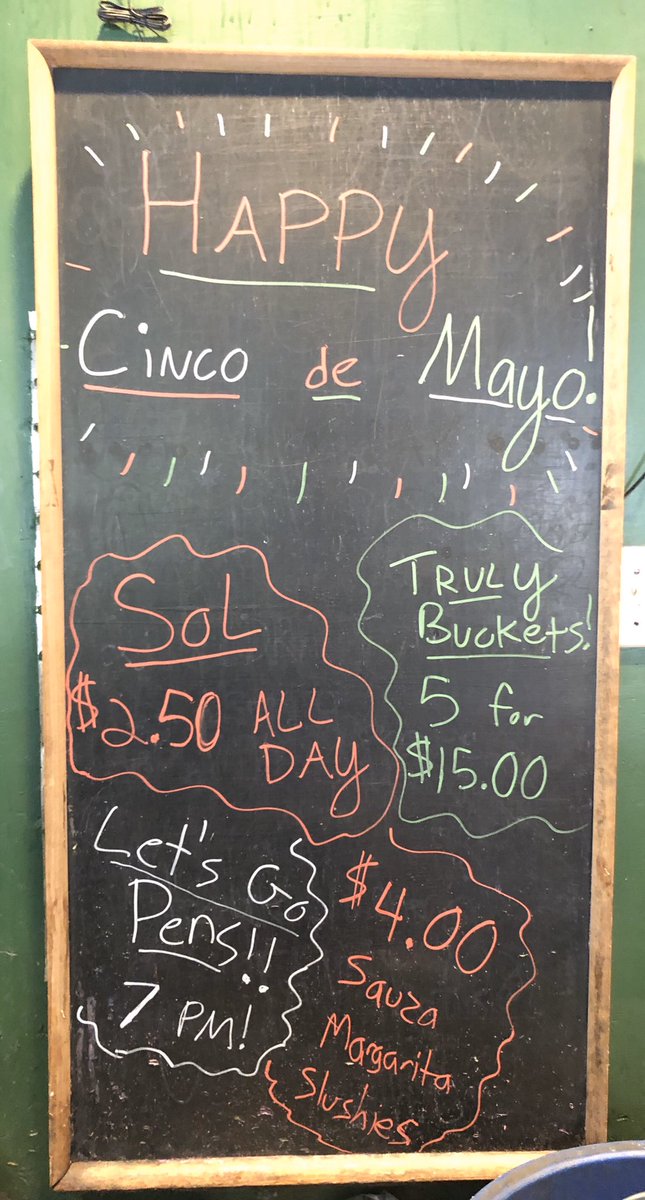 HAPPY
CINCO de Mayo.
SOL
$2.50 ALL
DAY
TRULY
BUCKETS!
5 for
$15.00
Let's Go
Pens!!
7 PM!
$4.00
Sauza
Margarita
Slushies